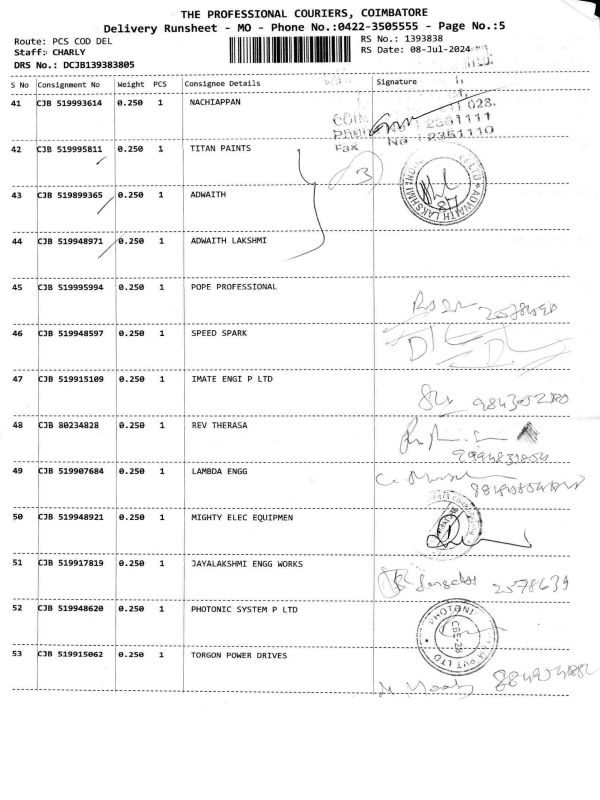 THE PROFESSIONAL COURIERS, COIMBATORE
Delivery Runsheet - MO - Phone No.:0422-3505555 - Page No.:5
Route: PCS COD DEL
RS No.: 1393838
Staff: CHARLY
RS Date: 08-Jul-2024
DRS No.: DCJB139383805
S No Consignment No Weight PCS Consignee Details Signature
41 CJB 519993614 0.250 1 NACHIAPPAN
028.
2351111
No 2351110
Fax
42 CJB 519995811 0.250 1 TITAN PAINTS
3
43 CJB 519899365 0.250 1 ADWAITH
ADWAITH LAKSHMI
87
44 CJB 519948971 0.250 1 ADWAITH LAKSHMI
45 CJB 519995994 0.250 1 POPE PROFESSIONAL
46 CJB 519948597 0.250 1 SPEED SPARK
47 CJB 519915109 0.250 1 IMATE ENGI P LTD
48 CJB 80234828 0.250 1 REV THERASA
49 CJB 519907684 0.250 1 LAMBDA ENGG
50 CJB 519948921 0.250 1 MIGHTY ELEC EQUIPMEN
51 CJB 519917819 0.250 1 JAYALAKSHMI ENGG WORKS
2578639
52 CJB 519948620 0.250 1 PHOTONIC SYSTEM P LTD
PHOTONI
CBE-28
PVT LTD
53 CJB 519915062 0.250 1 TORGON POWER DRIVES